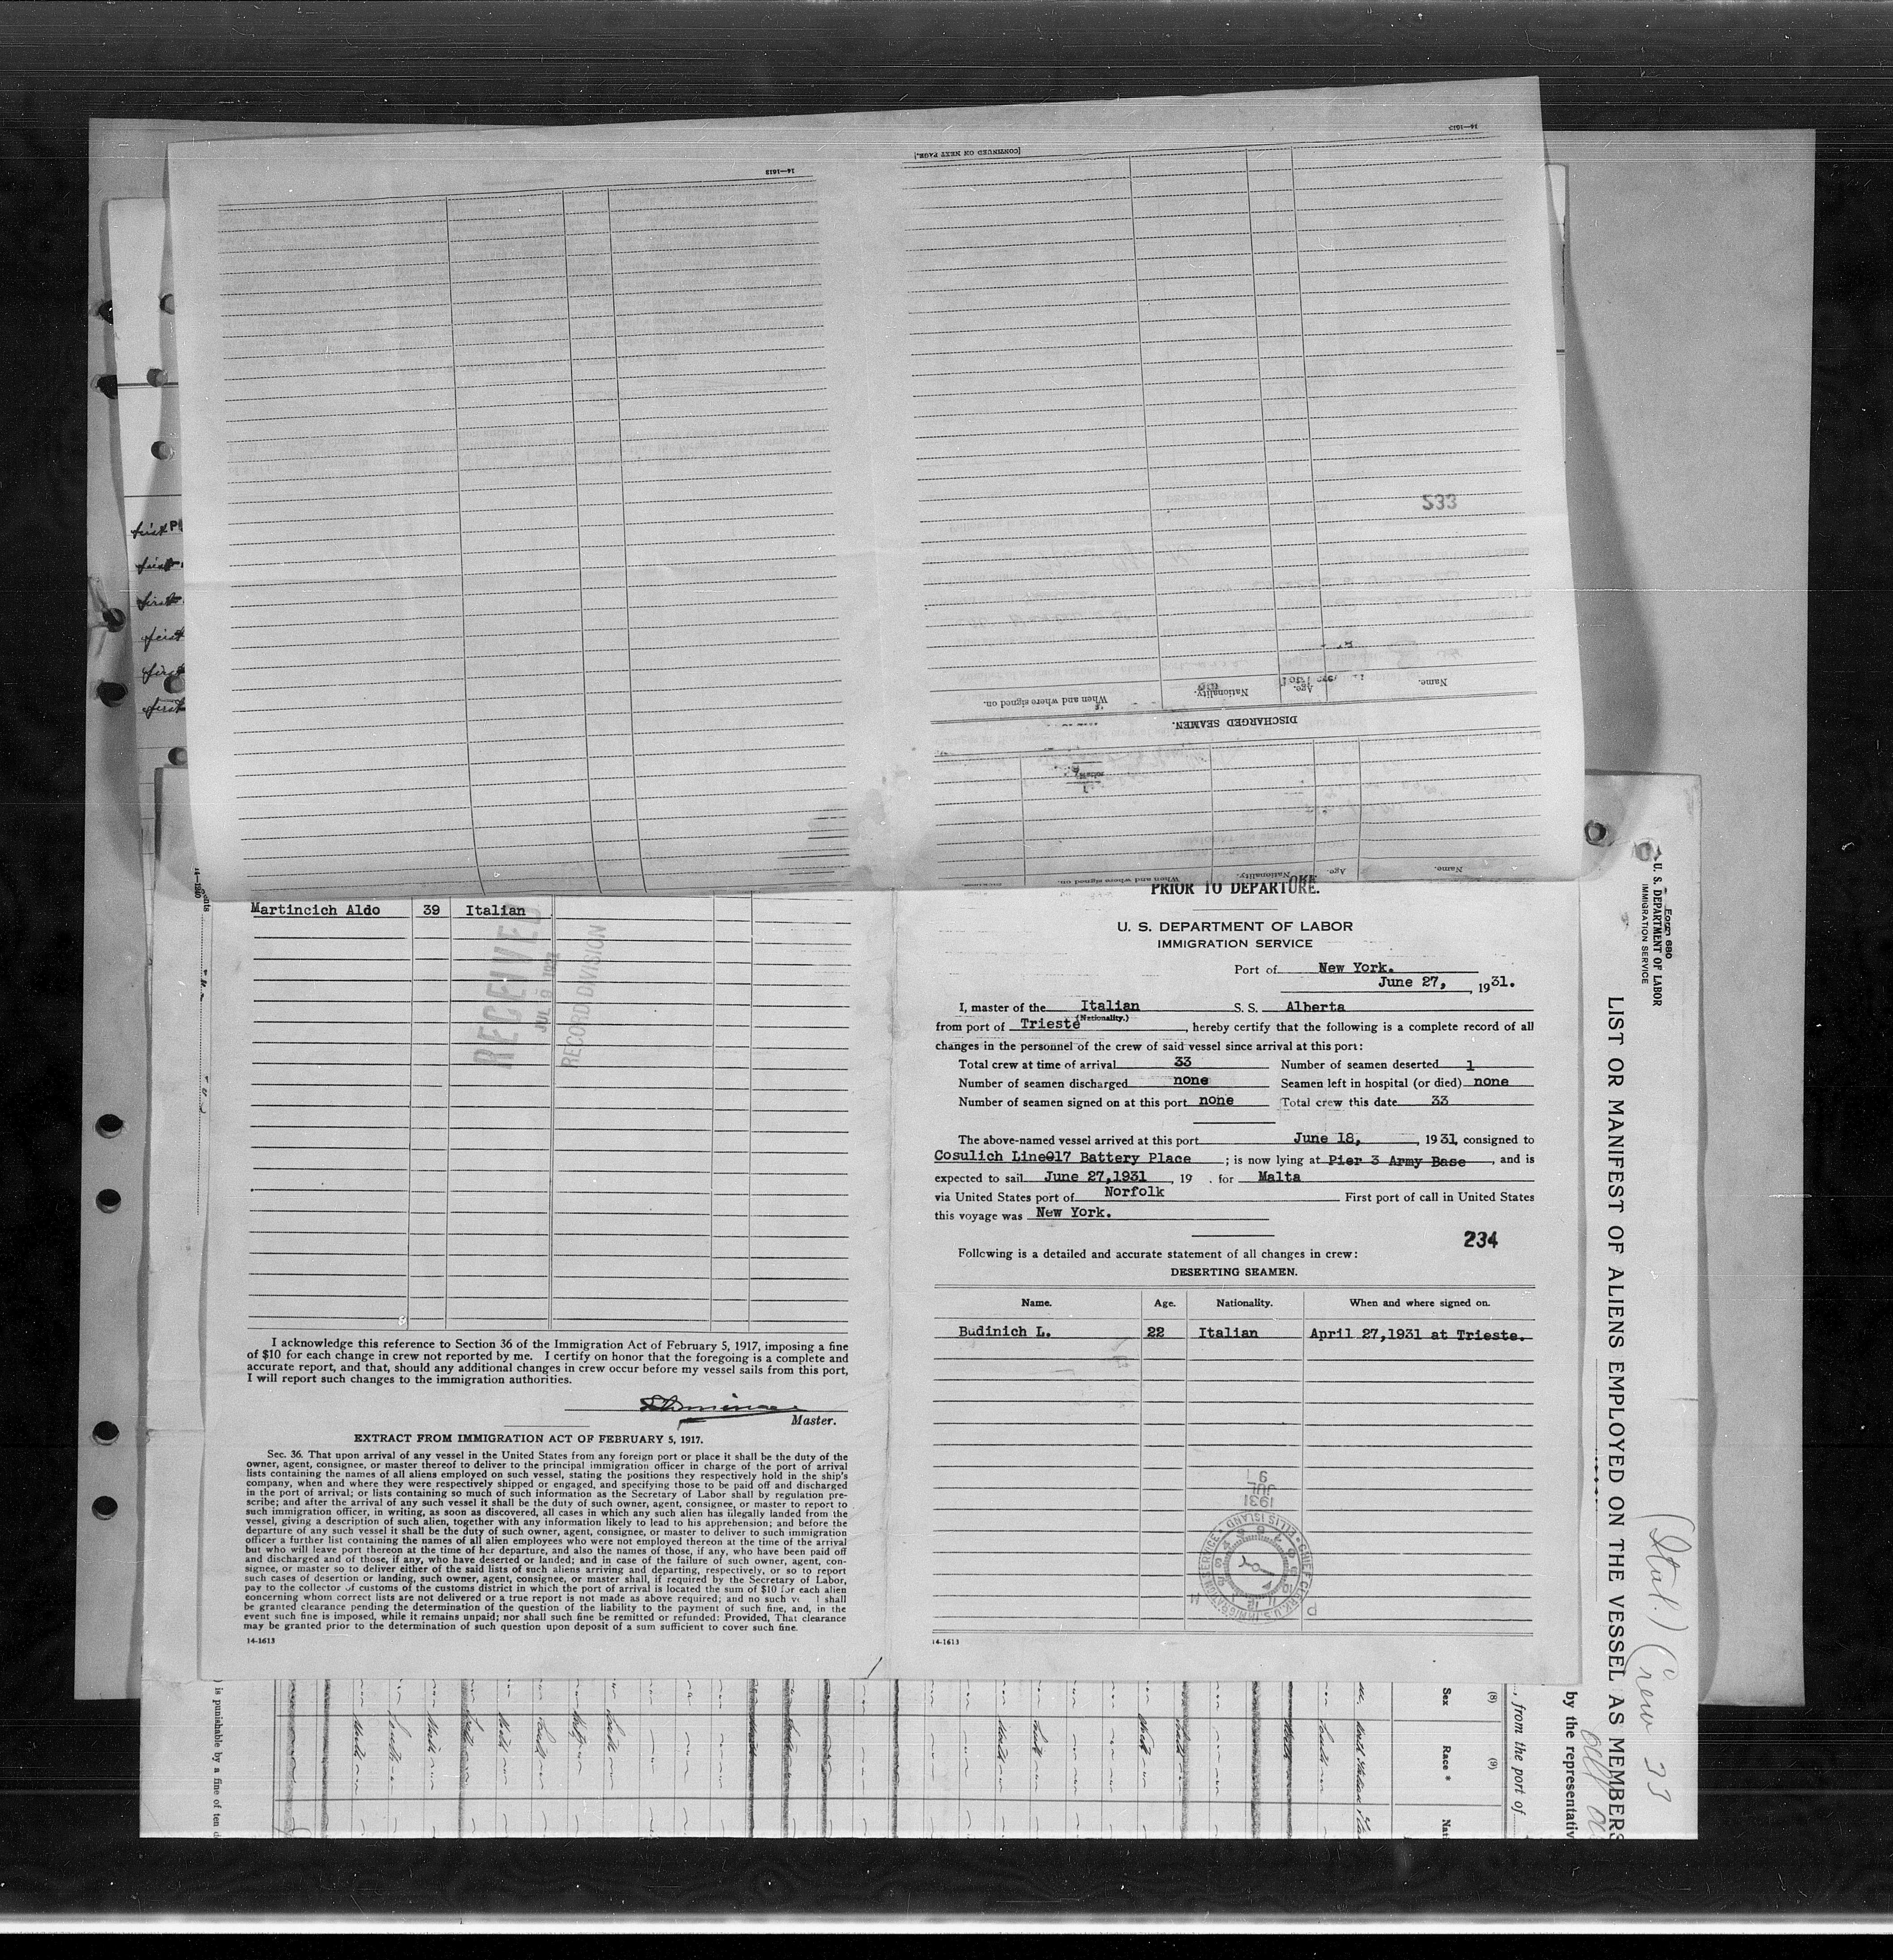 14—1613
[CONTINUED ON NEXT PAGE.]
14—1613
233
Name.
Age.
Nationality.
When and where signed on.
DISCHARGED SEAMEN.
Name.
Age.
Nationality.
When and where signed on.
Martincich Aldo 39 Italian
RECEIVED
JUL 9 1931
RECORD DIVISION
I acknowledge this reference to Section 36 of the Immigration Act of February 5, 1917, imposing a fine
of $10 for each change in crew not reported by me. I certify on honor that the foregoing is a complete and
accurate report, and that, should any additional changes in crew occur before my vessel sails from this port,
I will report such changes to the immigration authorities.
Master.
EXTRACT FROM IMMIGRATION ACT OF FEBRUARY 5, 1917.
Sec. 36. That upon arrival of any vessel in the United States from any foreign port or place it shall be the duty of the
owner, agent, consignee, or master thereof to deliver to the principal immigration officer in charge of the port of arrival
lists containing the names of all aliens employed on such vessel, stating the positions they respectively hold in the ship's
company, when and where they were respectively shipped or engaged, and specifying those to be paid off and discharged
in the port of arrival; or lists containing so much of such information as the Secretary of Labor shall by regulation pre-
scribe; and after the arrival of any such vessel it shall be the duty of such owner, agent, consignee, or master to report to
such immigration officer, in writing, as soon as discovered, all cases in which any such alien has illegally landed from the
vessel, giving a description of such alien, together with any information likely to lead to his apprehension; and before the
departure of any such vessel it shall be the duty of such owner, agent, consignee, or master to deliver to such immigration
officer a further list containing the names of all alien employees who were not employed thereon at the time of the arrival
but who will leave port thereon at the time of her departure, and also the names of those, if any, who have been paid off
and discharged and of those, if any, who have deserted or landed; and in case of the failure of such owner, agent, con-
signee, or master so to deliver either of the said lists of such aliens arriving and departing, respectively, or so to report
such cases of desertion or landing, such owner, agent, consignee, or master shall, if required by the Secretary of Labor,
pay to the collector of customs of the customs district in which the port of arrival is located the sum of $10 for each alien
concerning whom correct lists are not delivered or a true report is not made as above required; and no such ve l shall
be granted clearance pending the determination of the question of the liability to the payment of such fine, and, in the
event such fine is imposed, while it remains unpaid; nor shall such fine be remitted or refunded: Provided, That clearance
may be granted prior to the determination of such question upon deposit of a sum sufficient to cover such fine.
14-1613
PRIOR TO DEPARTURE.
U. S. DEPARTMENT OF LABOR
IMMIGRATION SERVICE
Port of New York.
June 27, 1931.
I, master of the Italian S. S. Alberta
(Nationality.)
from port of Trieste, hereby certify that the following is a complete record of all
changes in the personnel of the crew of said vessel since arrival at this port:
Total crew at time of arrival 33 Number of seamen deserted 1
Number of seamen discharged none Seamen left in hospital (or died) none
Number of seamen signed on at this port none Total crew this date 33
The above-named vessel arrived at this port June 18, 1931, consigned to
Cosulich Line 17 Battery Place ; is now lying at Pier 3 Army Base, and is
expected to sail June 27,1931, 19 . for Malta
via United States port of Norfolk First port of call in United States
this voyage was New York.
234
Following is a detailed and accurate statement of all changes in crew:
DESERTING SEAMEN.
Name. Age. Nationality. When and where signed on.
Budinich L. 22 Italian April 27,1931 at Trieste.
1931
JUL
9
CHIEF CLERK, U.S. IMMIGRATION SERVICE • ELLIS ISLAND
14-1613
Form 680
U. S. DEPARTMENT OF LABOR
IMMIGRATION SERVICE
LIST OR MANIFEST OF ALIENS EMPLOYED ON THE VESSEL AS MEMBERS
(Ital.) Crew 33
by the representativ
from the port of
(8) (9)
Sex Race * Nat
) is punishable by a fine of ten d
first
first
first
first
first
first